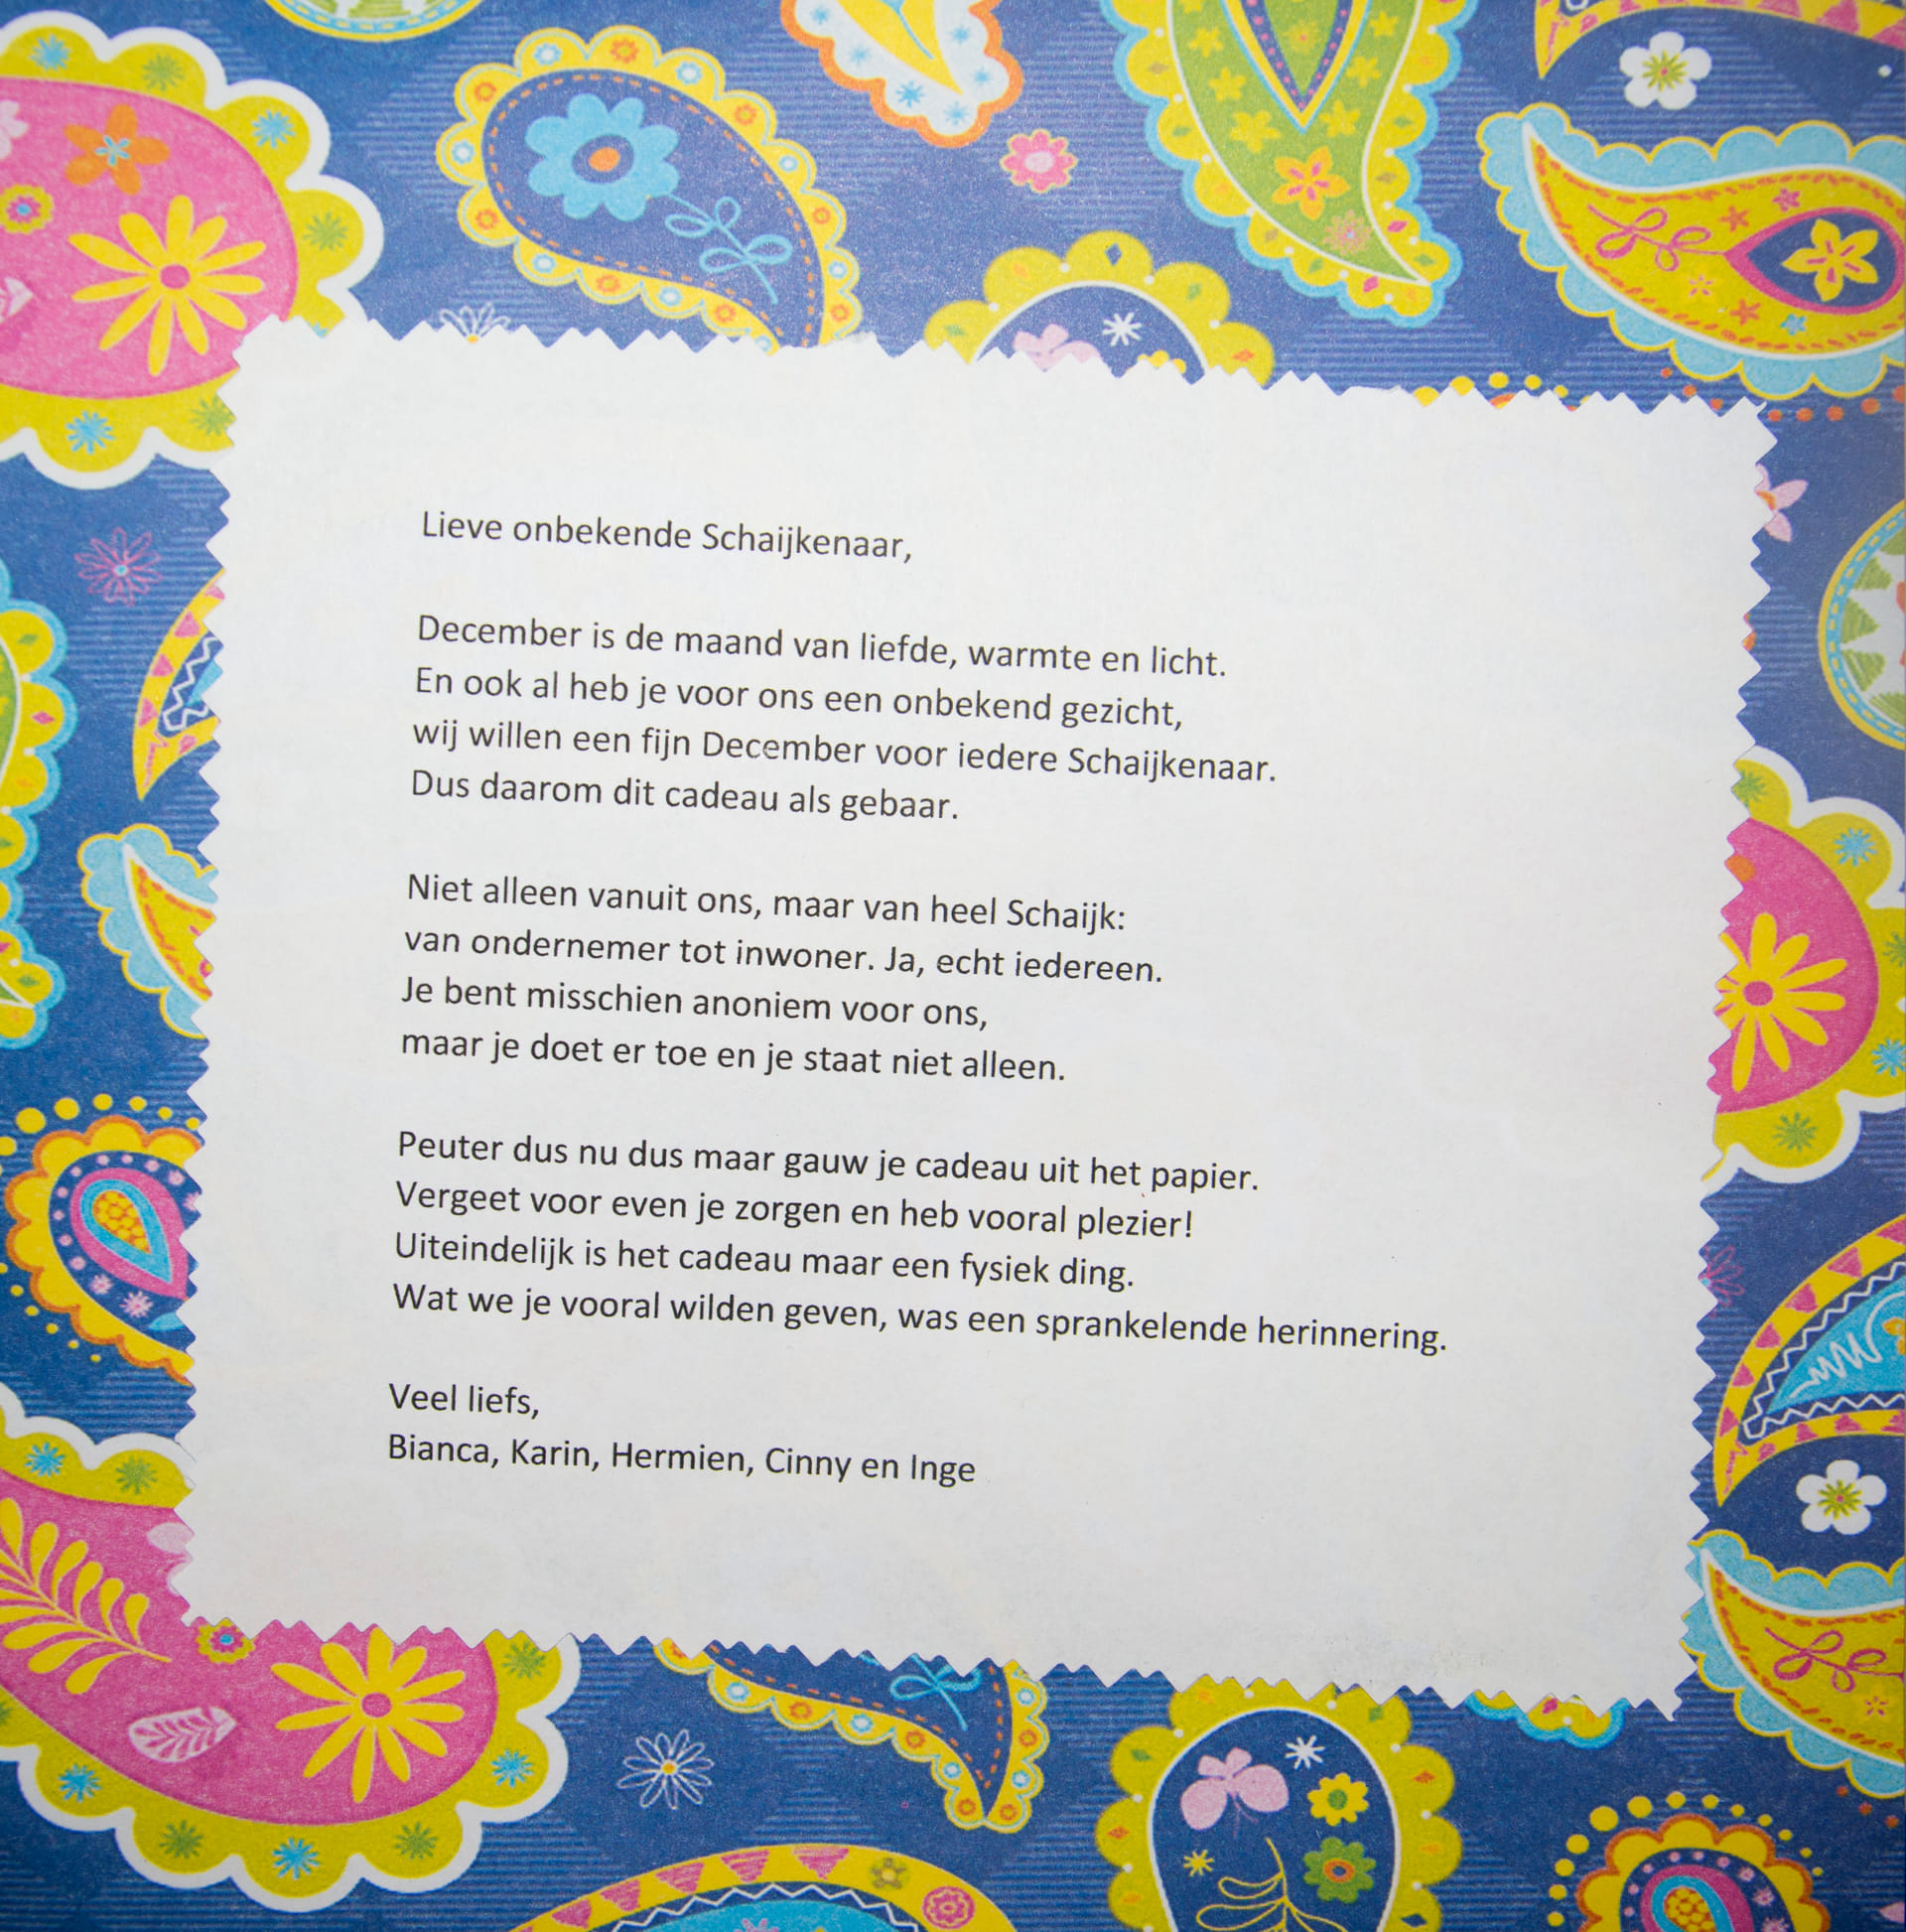 Lieve onbekende Schaijkenaar,
December is de maand van liefde, warmte en licht.
En ook al heb je voor ons een onbekend gezicht,
wij willen een fijn December voor iedere Schaijkenaar.
Dus daarom dit cadeau als gebaar.
Niet alleen vanuit ons, maar van heel Schaijk:
van ondernemer tot inwoner. Ja, echt iedereen.
Je bent misschien anoniem voor ons,
maar je doet er toe en je staat niet alleen.
Peuter dus nu dus maar gauw je cadeau uit het papier.
Vergeet voor even je zorgen en heb vooral plezier!
Uiteindelijk is het cadeau maar een fysiek ding.
Wat we je vooral wilden geven, was een sprankelende herinnering.
Veel liefs,
Bianca, Karin, Hermien, Cinny en Inge